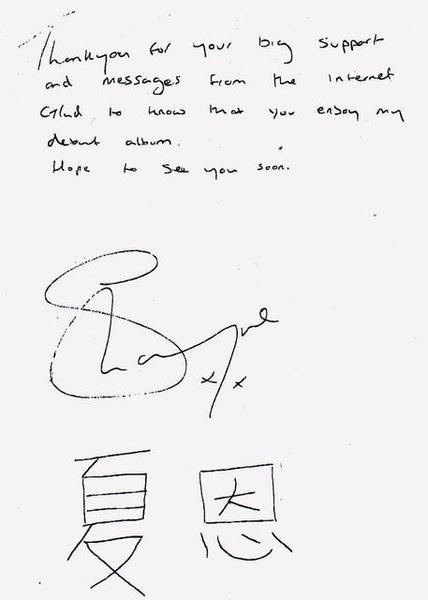 Thankyou for your big support
and messages from the internet
Glad to know that you enjoy my
debut album.
Hope to see you soon.
Shayne
x x
夏恩